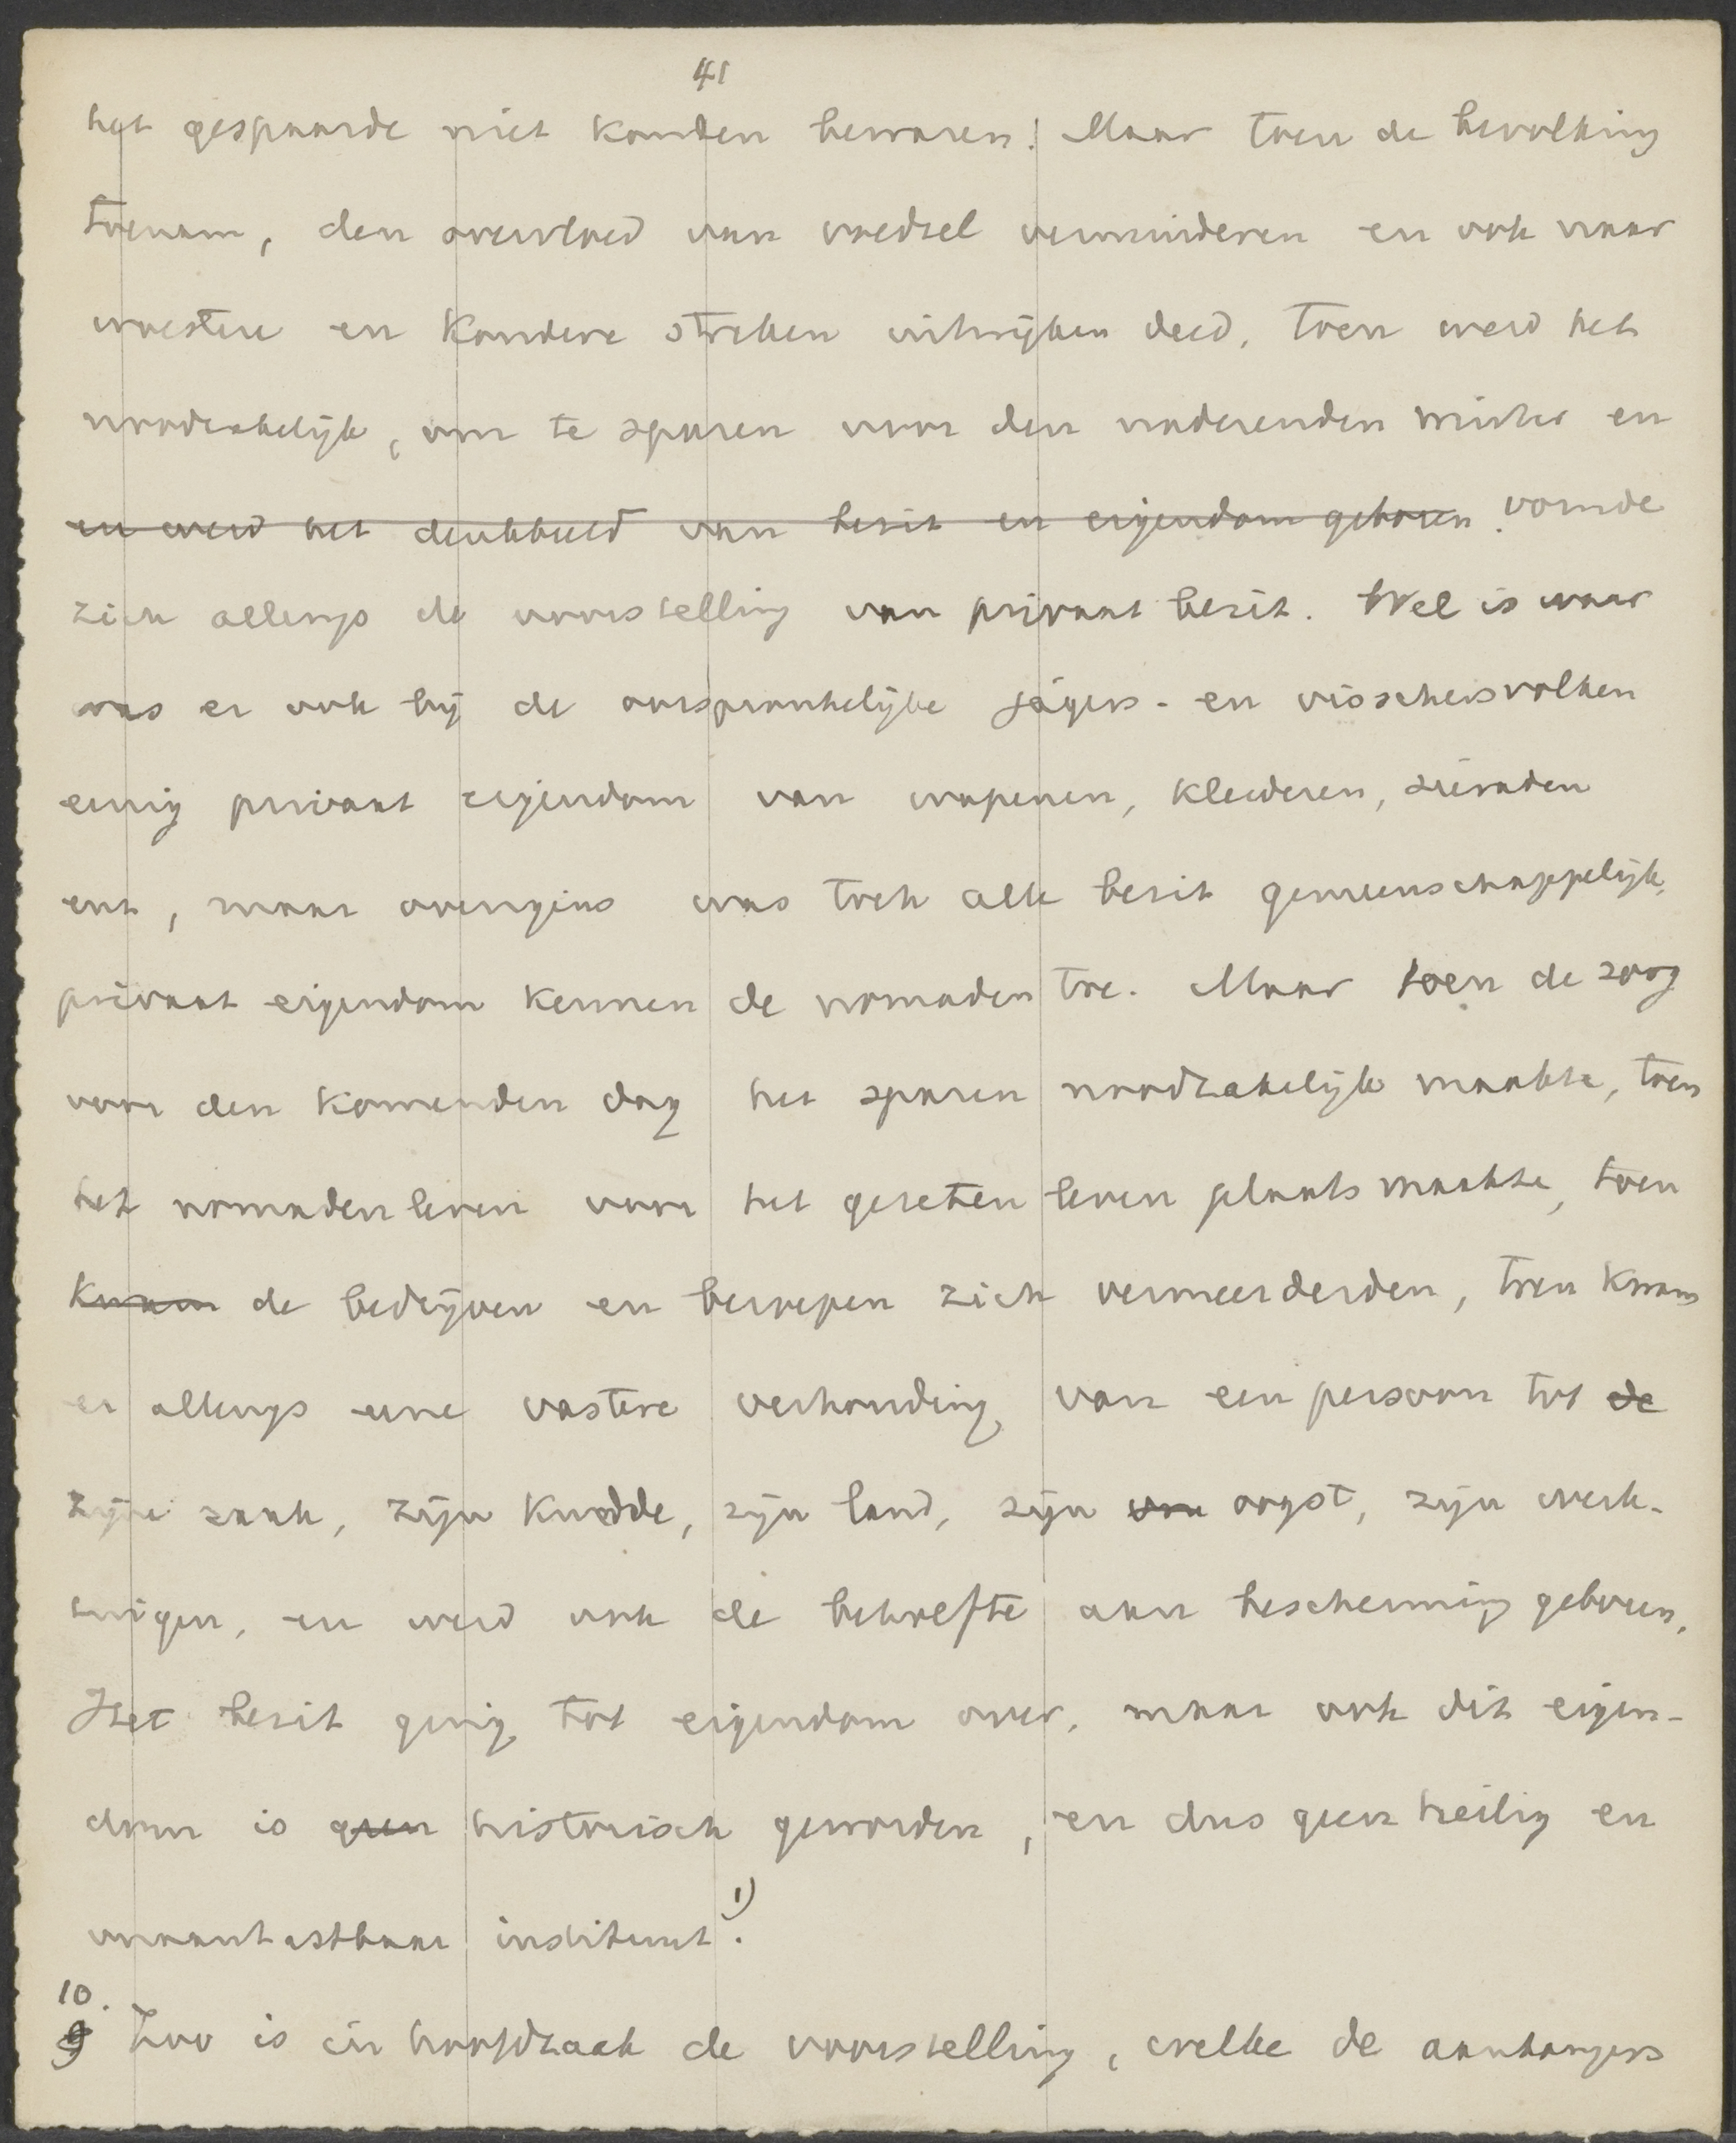 41
het gespaarde niet konden bewaren! Maar toen de bevolking
toenam, den overvloed van voedsel verminderen en ook naar
woestere en koudere streken uitwijken deed, toen werd het
noodzakelijk, om te sparen voor den naderenden winter en
en werd het denkbeeld van bezit en eigendom geboren. vormde
zich allengs de voorstelling van privaat bezit. Wel is waar
was er ook bij de oorspronkelijke jagers- en visschersvolken
eenig privaat eigendom van wapenen, kleederen, sieraden
enz, maar overigens was toch alle bezit gemeenschappelijk,
privaat eigendom kennen de nomaden toe. Maar toen de zorg
voor den komenden dag het sparen noodzakelijk maakte, toen
het nomadenleven voor het gezeten leven plaats maakte, toen
kwam de bedrijven en beroepen zich vermeerderden, toen kwam
er allengs eene vastere verhouding van een persoon tot de
zijne zaak, zijn kudde, zijn land, zijn oogst, zijn werk-
tuigen, en werd ook de behoefte aan bescherming geboren.
Het bezit ging tot eigendom over, maar ook dit eigen-
dom is geen historisch geworden, en dus geen heilig en
onaantastbaar instituut. 1)
10.
9 Zoo is in hoofdzaak de voorstelling, welke de aanhangers